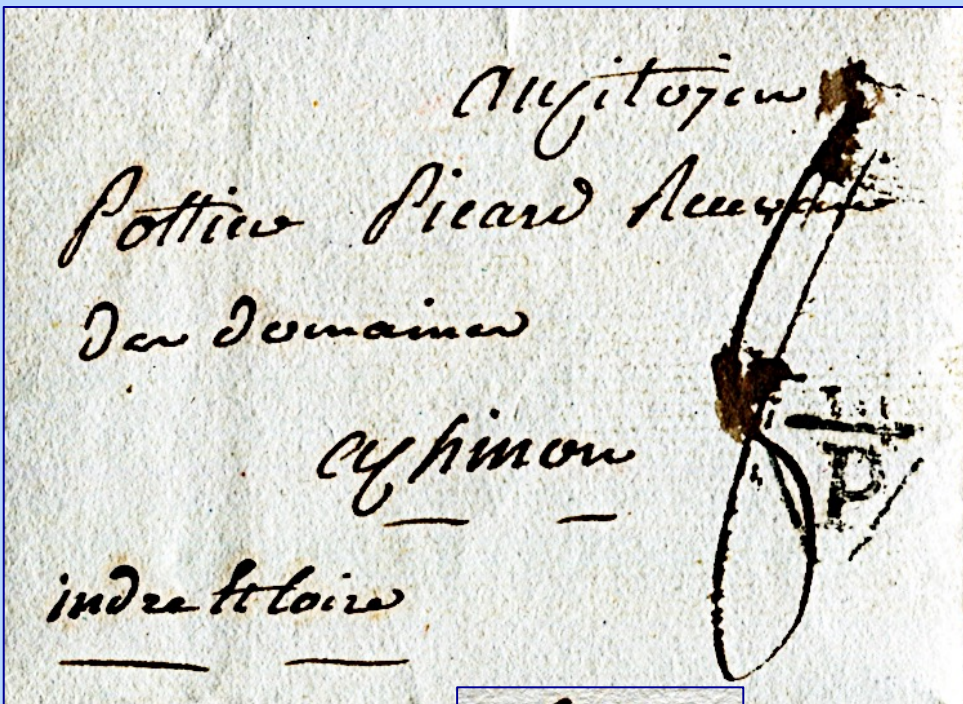 au citoyen
Pottier Picard Receveur
des domaines
a chinon
indre et Loire
P